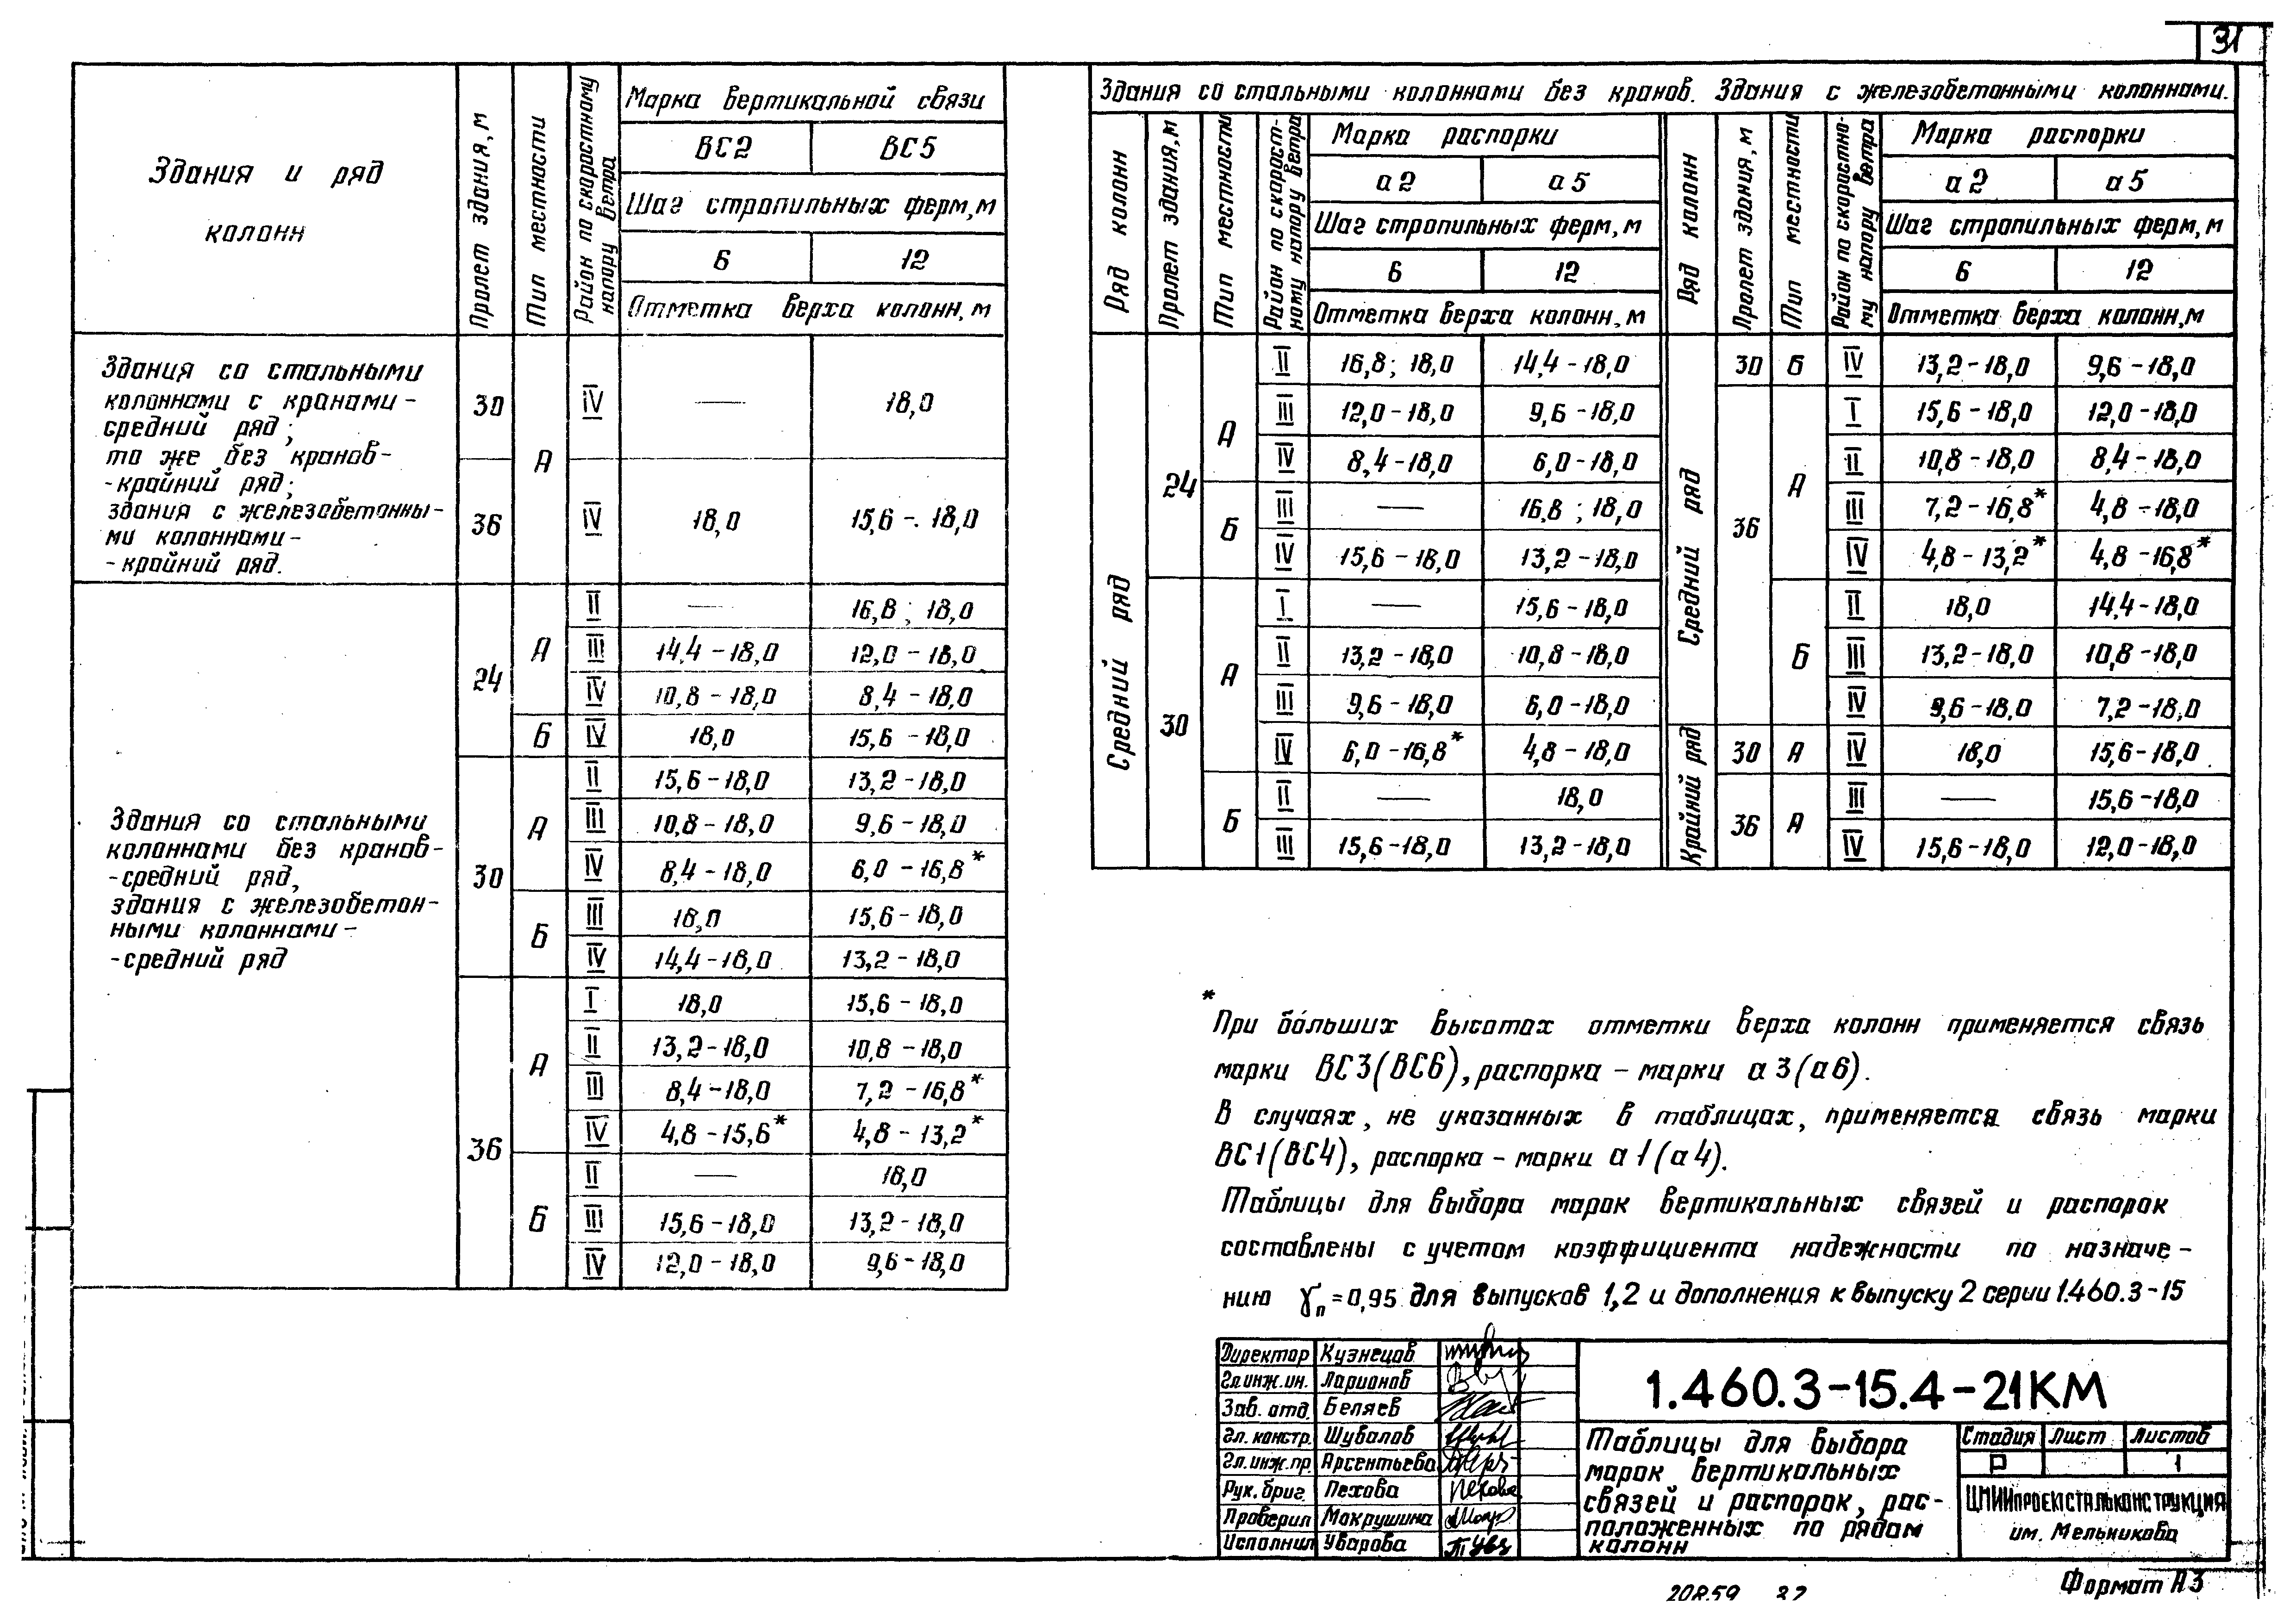 31
Здания и ряд колонн
Пролет здания, м
Тип местности
Район по скоростному напору ветра
Марка вертикальной связи
ВС2 ВС5
Шаг стропильных ферм, м
6 12
Отметка верха колонн, м
Здания со стальными
колоннами с кранами-
средний ряд;
то же без кранов-
-крайний ряд;
здания с железобетонны-
ми колоннами-
-крайний ряд.
30 А IV — 18,0
36 IV 18,0 15,6-18,0
Здания со стальными
колоннами без кранов-
-средний ряд,
здания с железобетон-
ными колоннами-
-средний ряд
24 А II — 16,8; 18,0
III 14,4-18,0 12,0-18,0
IV 10,8-18,0 8,4-18,0
Б IV 18,0 15,6-18,0
30 А II 15,6-18,0 13,2-18,0
III 10,8-18,0 9,6-18,0
IV 8,4-18,0 6,0-16,8*
Б III 18,0 15,6-18,0
IV 14,4-18,0 13,2-18,0
36 А I 18,0 15,6-18,0
II 13,2-18,0 10,8-18,0
III 8,4-18,0 7,2-16,8*
IV 4,8-15,6* 4,8-13,2*
Б II — 18,0
III 15,6-18,0 13,2-18,0
IV 12,0-18,0 9,6-18,0
Здания со стальными колоннами без кранов. Здания с железобетонными колоннами.
Ряд колонн
Пролет здания, м
Тип местности
Район по скорост-
ному напору ветра
Марка распорки
а2 а5
Шаг стропильных ферм, м
6 12
Отметка верха колонн, м
Средний ряд
24 А II 16,8; 18,0 14,4-18,0
III 12,0-18,0 9,6-18,0
IV 8,4-18,0 6,0-18,0
Б III — 16,8; 18,0
IV 15,6-18,0 13,2-18,0
30 А I — 15,6-18,0
II 13,2-18,0 10,8-18,0
III 9,6-18,0 6,0-18,0
IV 6,0-16,8* 4,8-18,0
Б II — 18,0
III 15,6-18,0 13,2-18,0
Ряд колонн
Пролет здания, м
Тип местности
Район по скоростно-
му напору ветра
Марка распорки
а2 а5
Шаг стропильных ферм, м
6 12
Отметка верха колонн, м
Средний ряд
30 Б IV 13,2-18,0 9,6-18,0
36 А I 15,6-18,0 12,0-18,0
II 10,8-18,0 8,4-18,0
III 7,2-16,8* 4,8-18,0
IV 4,8-13,2* 4,8-16,8*
Б II 18,0 14,4-18,0
III 13,2-18,0 10,8-18,0
IV 9,6-18,0 7,2-18,0
Крайний ряд
30 А IV 18,0 15,6-18,0
36 А III — 15,6-18,0
IV 15,6-18,0 12,0-18,0
* При бо́льших высотах отметки верха колонн применяется связь
марки ВС3(ВС6), распорка - марки а3(а6).
В случаях, не указанных в таблицах, применяется связь марки
ВС1(ВС4), распорка - марки а1(а4).
Таблицы для выбора марок вертикальных связей и распорок
составлены с учетом коэффициента надежности по назначе-
нию γп=0,95 для выпусков 1,2 и дополнения к выпуску 2 серии 1.460.3-15
Директор Кузнецов
Гл.инж.ин. Ларионов
Зав. отд. Беляев
Гл. констр. Шувалов
Гл.инж.пр. Арсентьева
Рук. бриг. Пехова
Проверил Мокрушина
Исполнил Уварова
1.460.3-15.4-21КМ
Таблицы для выбора
марок вертикальных
связей и распорок, рас-
положенных по рядам
колонн
Стадия Лист Листов
Р 1
ЦНИИпроектстальконструкция
им. Мельникова
Формат А3
20859 32